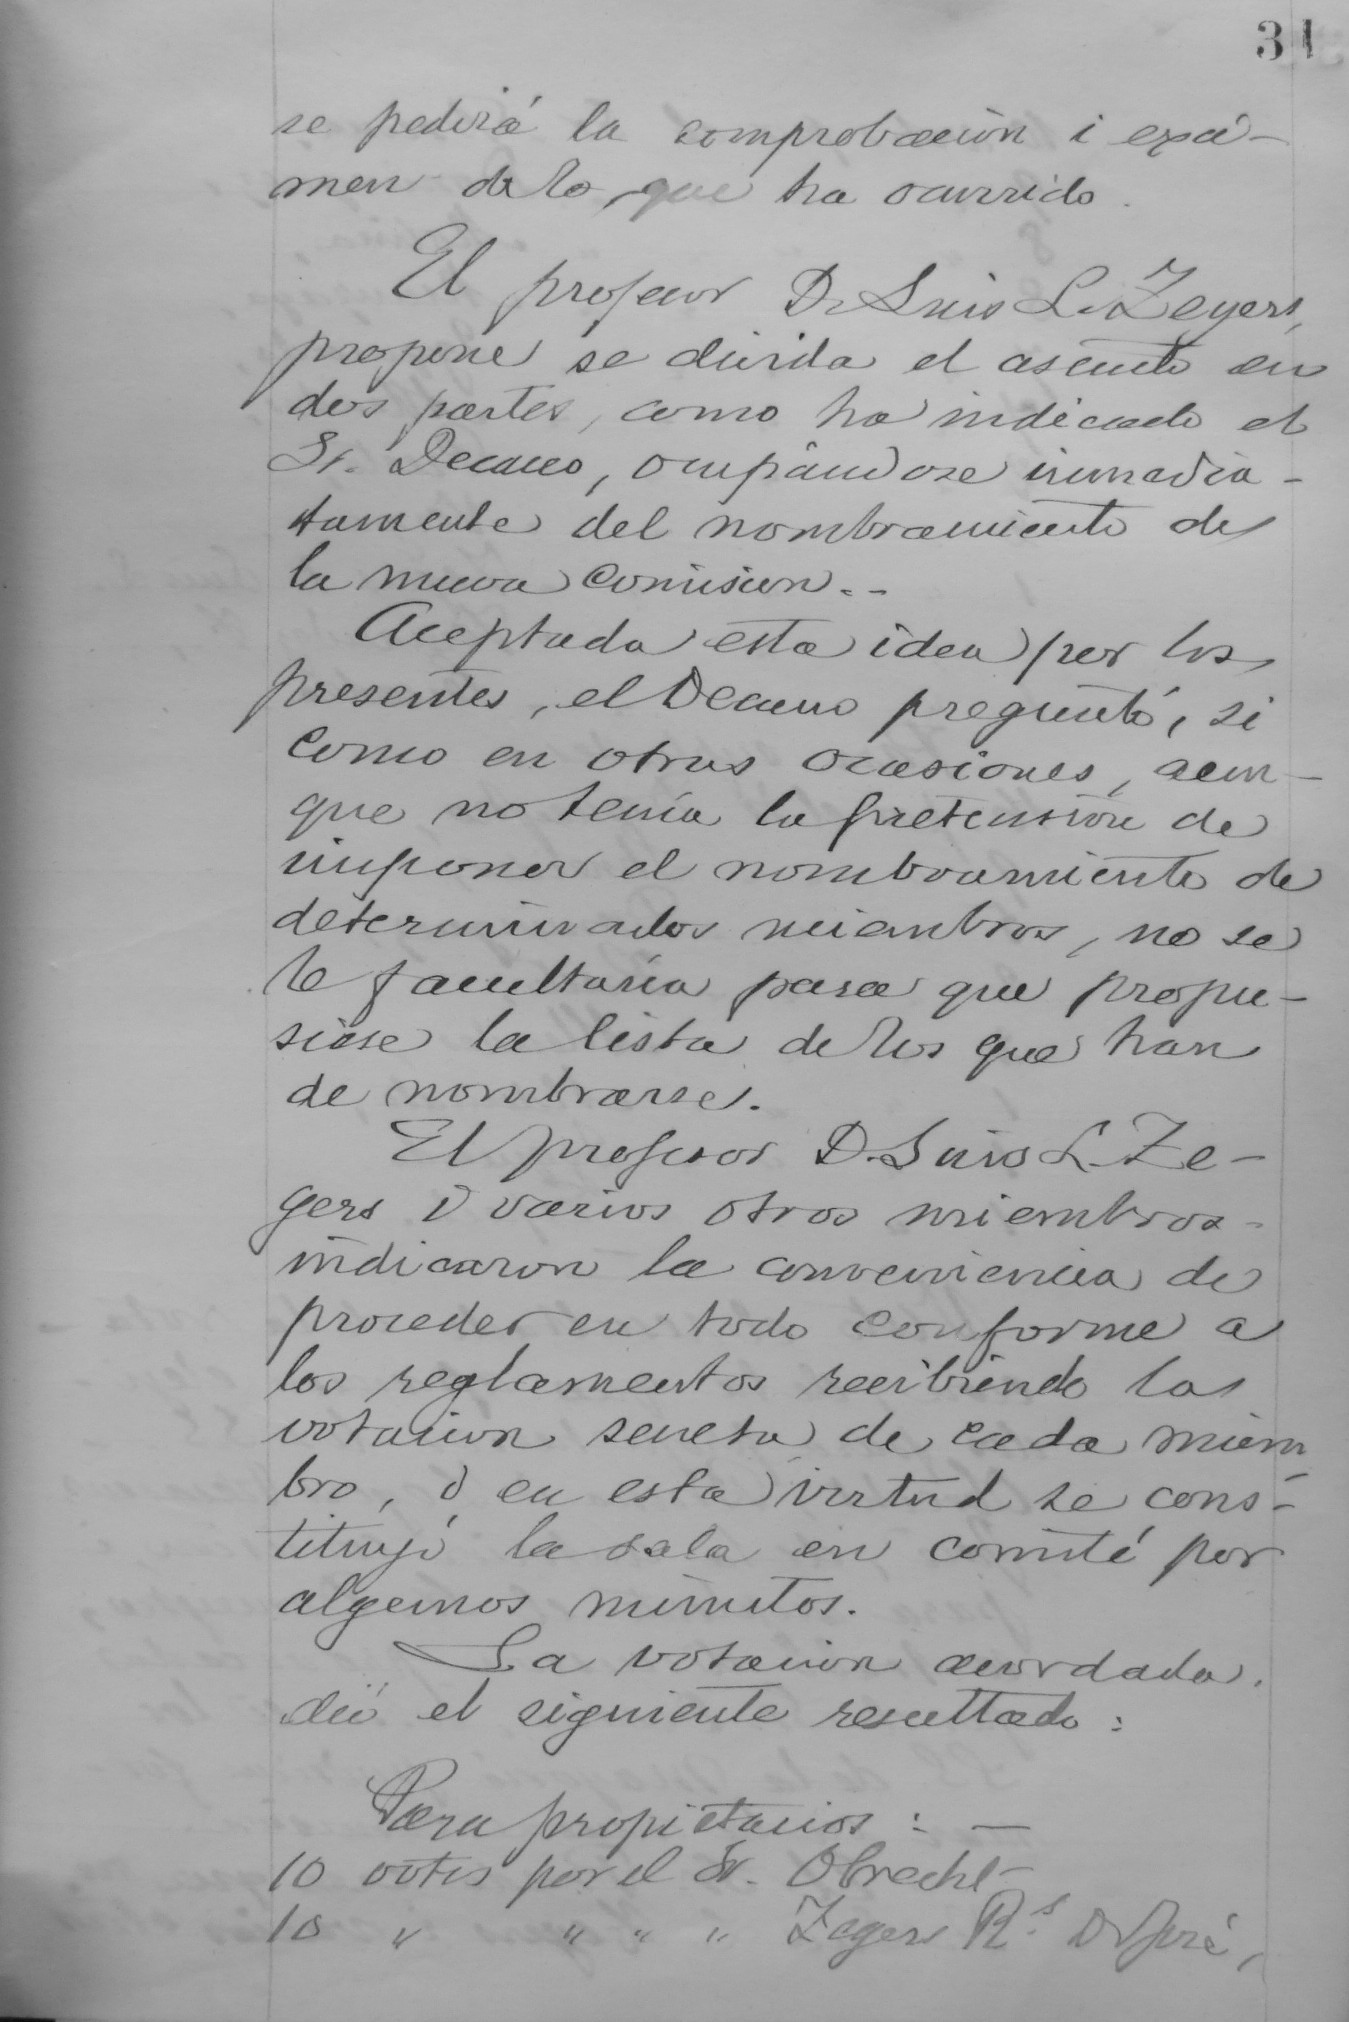 31
se pedirá la comprobacion i exá-
men de lo que ha ocurrido.
El profesor D. Luis L. Zegers,
propone se divida el asunto en
dos partes, como ha indicado el
Sr. Decano, ocupándose inmedia-
tamente del nombramiento de
la nueva comision.-
Aceptada esta idea por los
presentes, el Decano preguntó, si
como en otras ocasiones, aun-
que no tenía la pretension de
imponer el nombramiento de
determinados miembros, no se
le facultaría para que propu-
siese la lista de los que han
de nombrarse.
El profesor D. Luis L. Ze-
gers i varios otros miembros
indicaron la conveniencia de
proceder en todo conforme a
los reglamentos recibiendo la
votacion secreta de cada miem
bro, i en esta virtud se cons-
tituyó la sala en comité por
algunos minutos.
La votacion acordada
dió el siguiente resultado:
Para propietarios: —
10 votos por el Sr. Obrecht
10 " " " " Zegers R.s D. José,